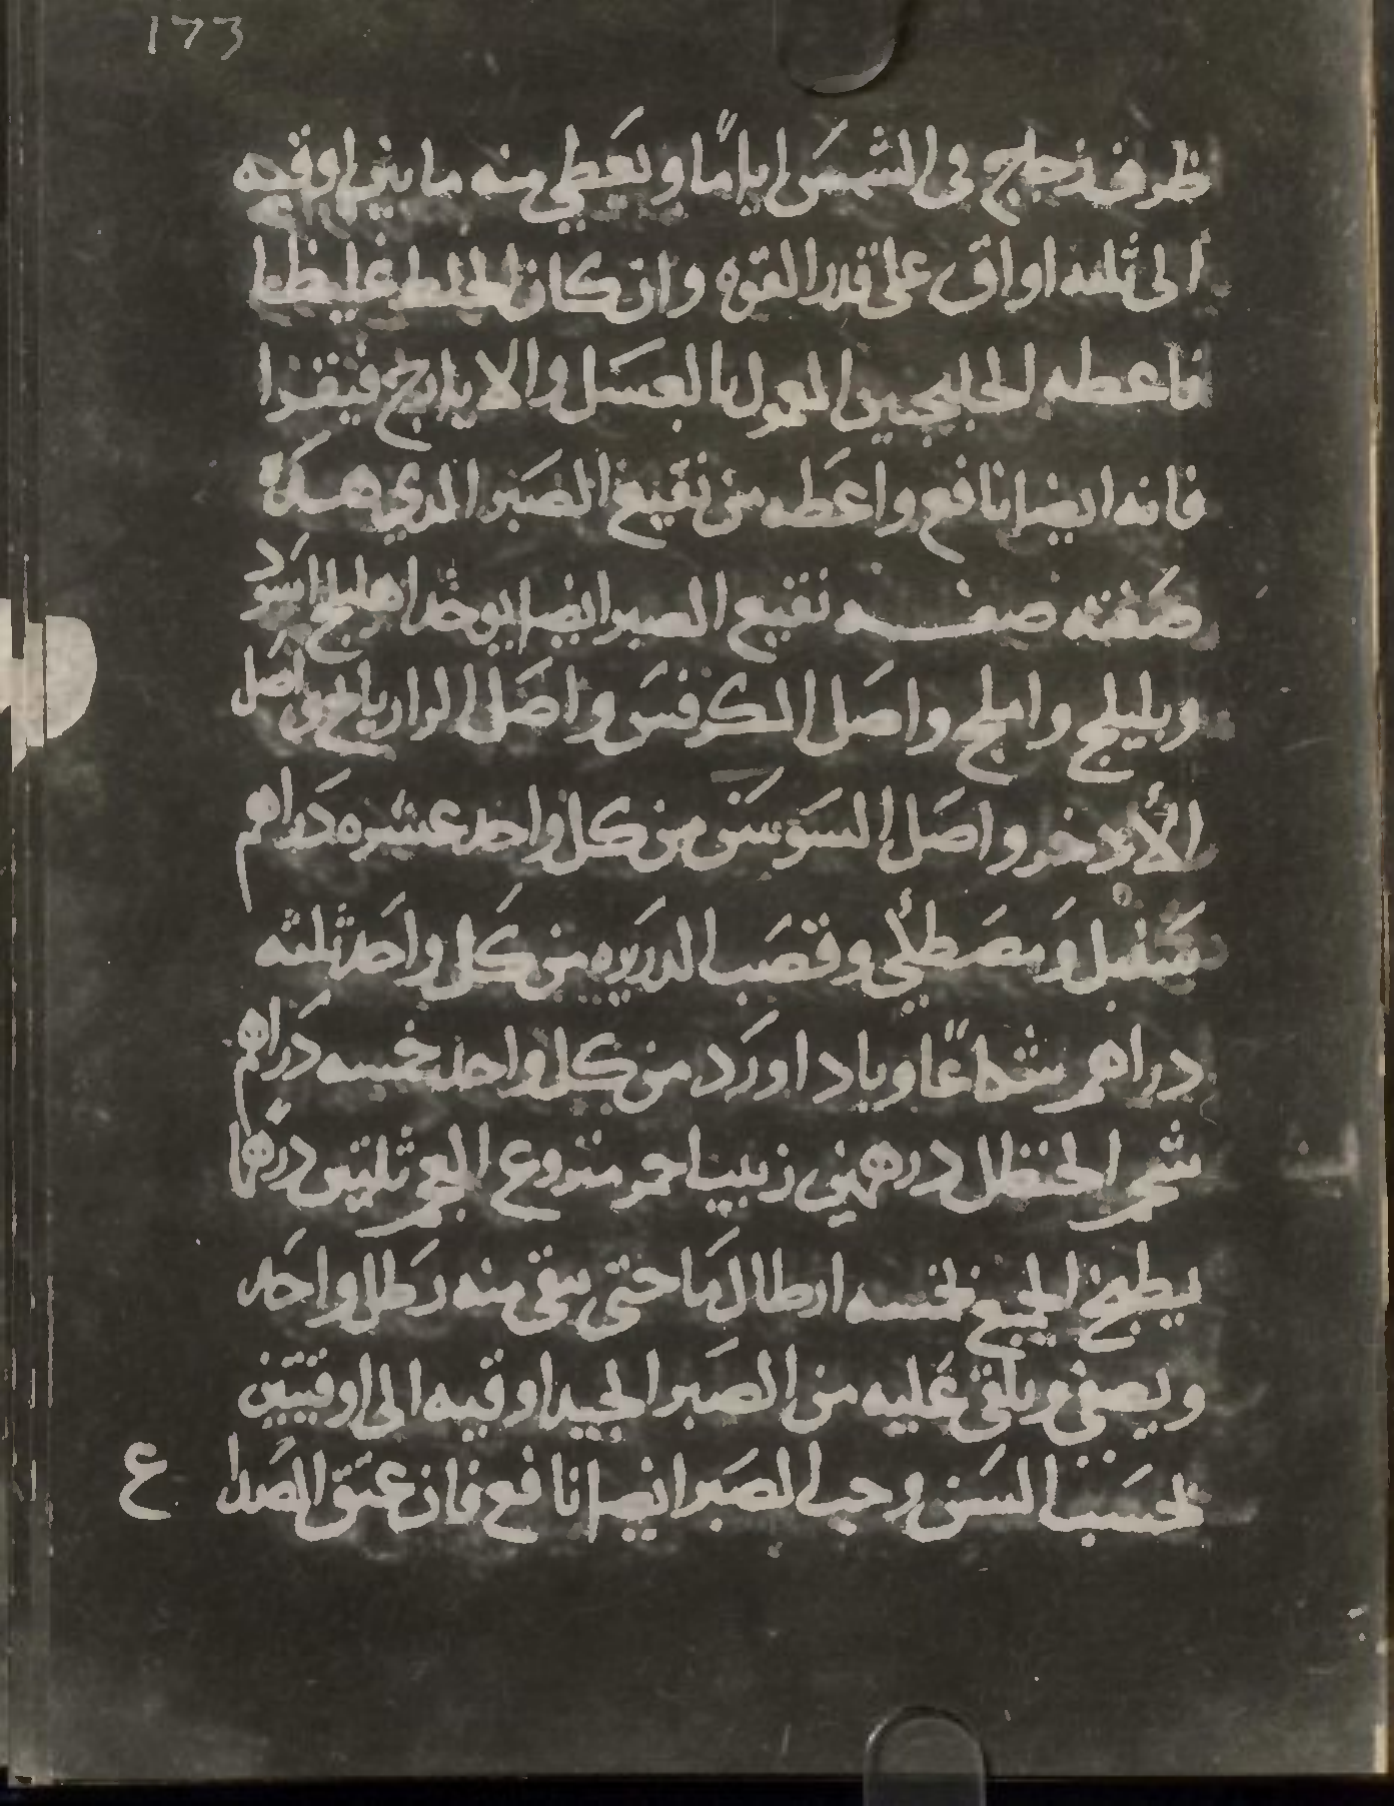 173
ظرف زجاج فى الشمس اياما ويعطي منه ما بين اوقيه
الى ثلثه اواق على قدر القوه وان كان الخلط غليظا
فاعطه الجلنجبين المعمول بالعسل والايارج فيقرا
فانه ايضا نافع واعطه من نقيع الصبر الذي هذه
صفته صفه نقيع الصبر ايضا يوخذ اهليلج اسود
وبليلج واملج واصل الكرفس واصل الرازيانج واصل
الأذخر واصل السوسن من كل واحد عشره دراهم
سنبل ومصطكى وقصب الدريره من كل واحد ثلثه
دراهم شكاعا وباد اورد من كل واحد خمسه دراهم
شحم الحنظل درهمين زبيب احمر منزوع العجم ثلثين درهما
يطبخ الجميع بخمسه ارطال ما حتى يبقى منه رطل واحد
ويصفى ويلقى عليه من الصبر الجيد اوقيه الى اوقيتين
بحسب السن وحب الصبر ايضا نافع فان عتق الصدا
ع